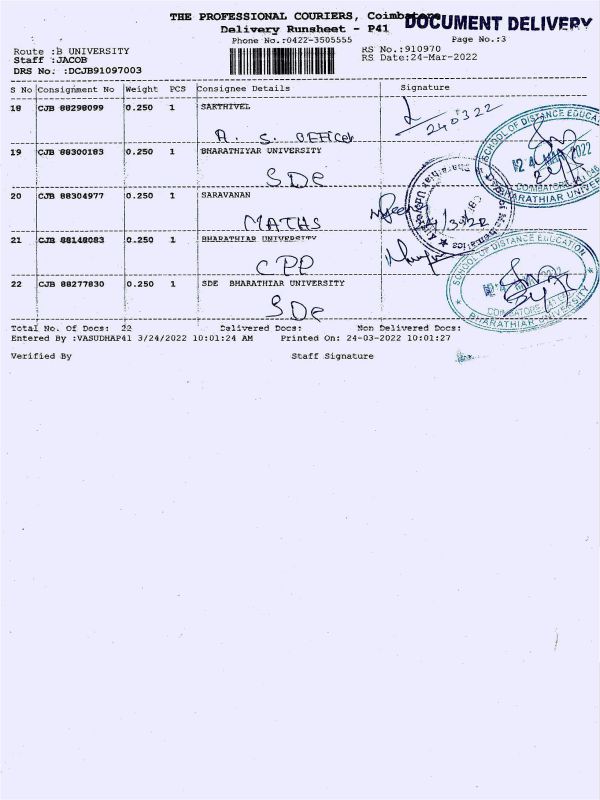 THE PROFESSIONAL COURIERS, Coimbatore
DOCUMENT DELIVERY
Delivery Runsheet - P41
Phone No.:0422-3505555
Page No.:3
Route :B UNIVERSITY
RS No.:910970
Staff :JACOB
RS Date:24-Mar-2022
DRS No. :DCJB91097003
S No Consignment No Weight PCS Consignee Details Signature
18 CJB 88298099 0.250 1 SAKTHIVEL
240322
A. S. OFFICER
19 CJB 88300183 0.250 1 BHARATHIYAR UNIVERSITY
SDE
SCHOOL OF DISTANCE EDUCA
24 MAR 2022
COIMBATORE 641 046
BHARATHIAR UNIVE
20 CJB 88304977 0.250 1 SARAVANAN
MATHS
21 CJB 88148083 0.250 1 BHARATHIAR UNIVERSITY
CPP
22 CJB 88277830 0.250 1 SDE BHARATHIAR UNIVERSITY
SDE
SCHOOL OF DISTANCE EDUCATION
COIMBATORE
BHARATHIAR UNIVERSITY
Total No. Of Docs: 22 Dalivered Docs: Non Delivered Docs:
Entered By :VASUDHAP41 3/24/2022 10:01:24 AM Printed On: 24-03-2022 10:01:27
Verified By Staff Signature